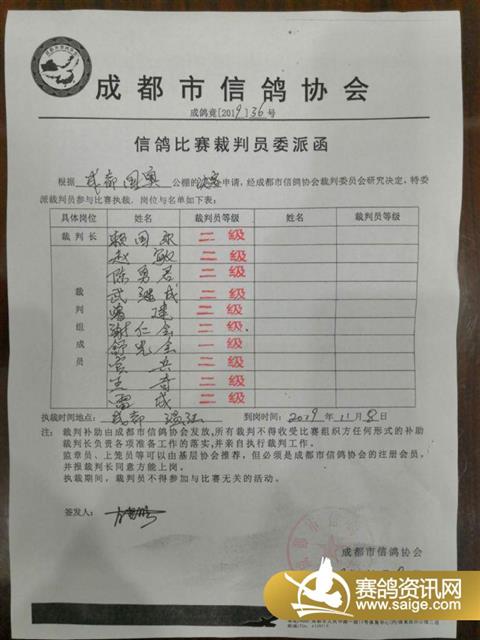 成都市信鸽协会
成鸽竞[2019]36号
信鸽比赛裁判员委派函
根据 成都国奥 公棚的决赛申请,经成都市信鸽协会裁判委员会研究决定,特委
派裁判员参与比赛执裁,岗位与名单如下表:
具体岗位 姓名 裁判员等级 姓名 裁判员等级
裁判长 赖国 二级
赵敏 二级
陈勇君 二级
武继成 二级
曾建 二级
谢仁全 二级
舒光全 一级
宫兵 二级
王奇 二级
雷成 二级
裁判组成员
执裁时间地点: 成都 温江 到岗时间: 2019年11月8日
注: 裁判补助由成都市信鸽协会发放,所有裁判不得收受比赛组织方任何形式的补助
裁判长负责各项准备工作的落实,并亲自执行裁判工作。
监章员、上笼员等可以由基层协会推荐,但必须是成都市信鸽协会的注册会员,
并报裁判长同意方能上岗。
执裁期间,裁判员不得参加与比赛无关的活动。
签发人:
成都市信鸽协会
赛鸽资讯网
www.saige.com